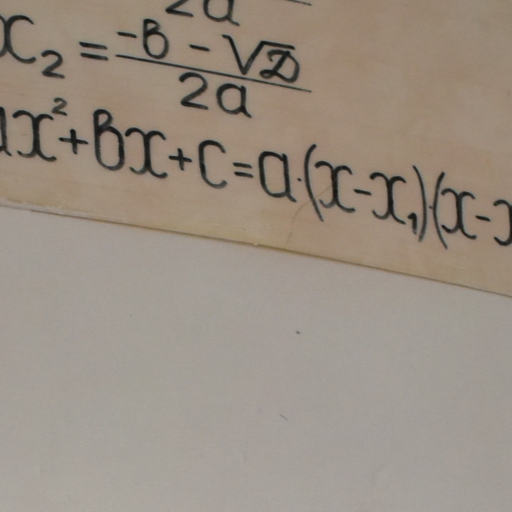 2a
x₂ = -b - √D / 2a
ax² + bx + c = a·(x - x₁)·(x - x